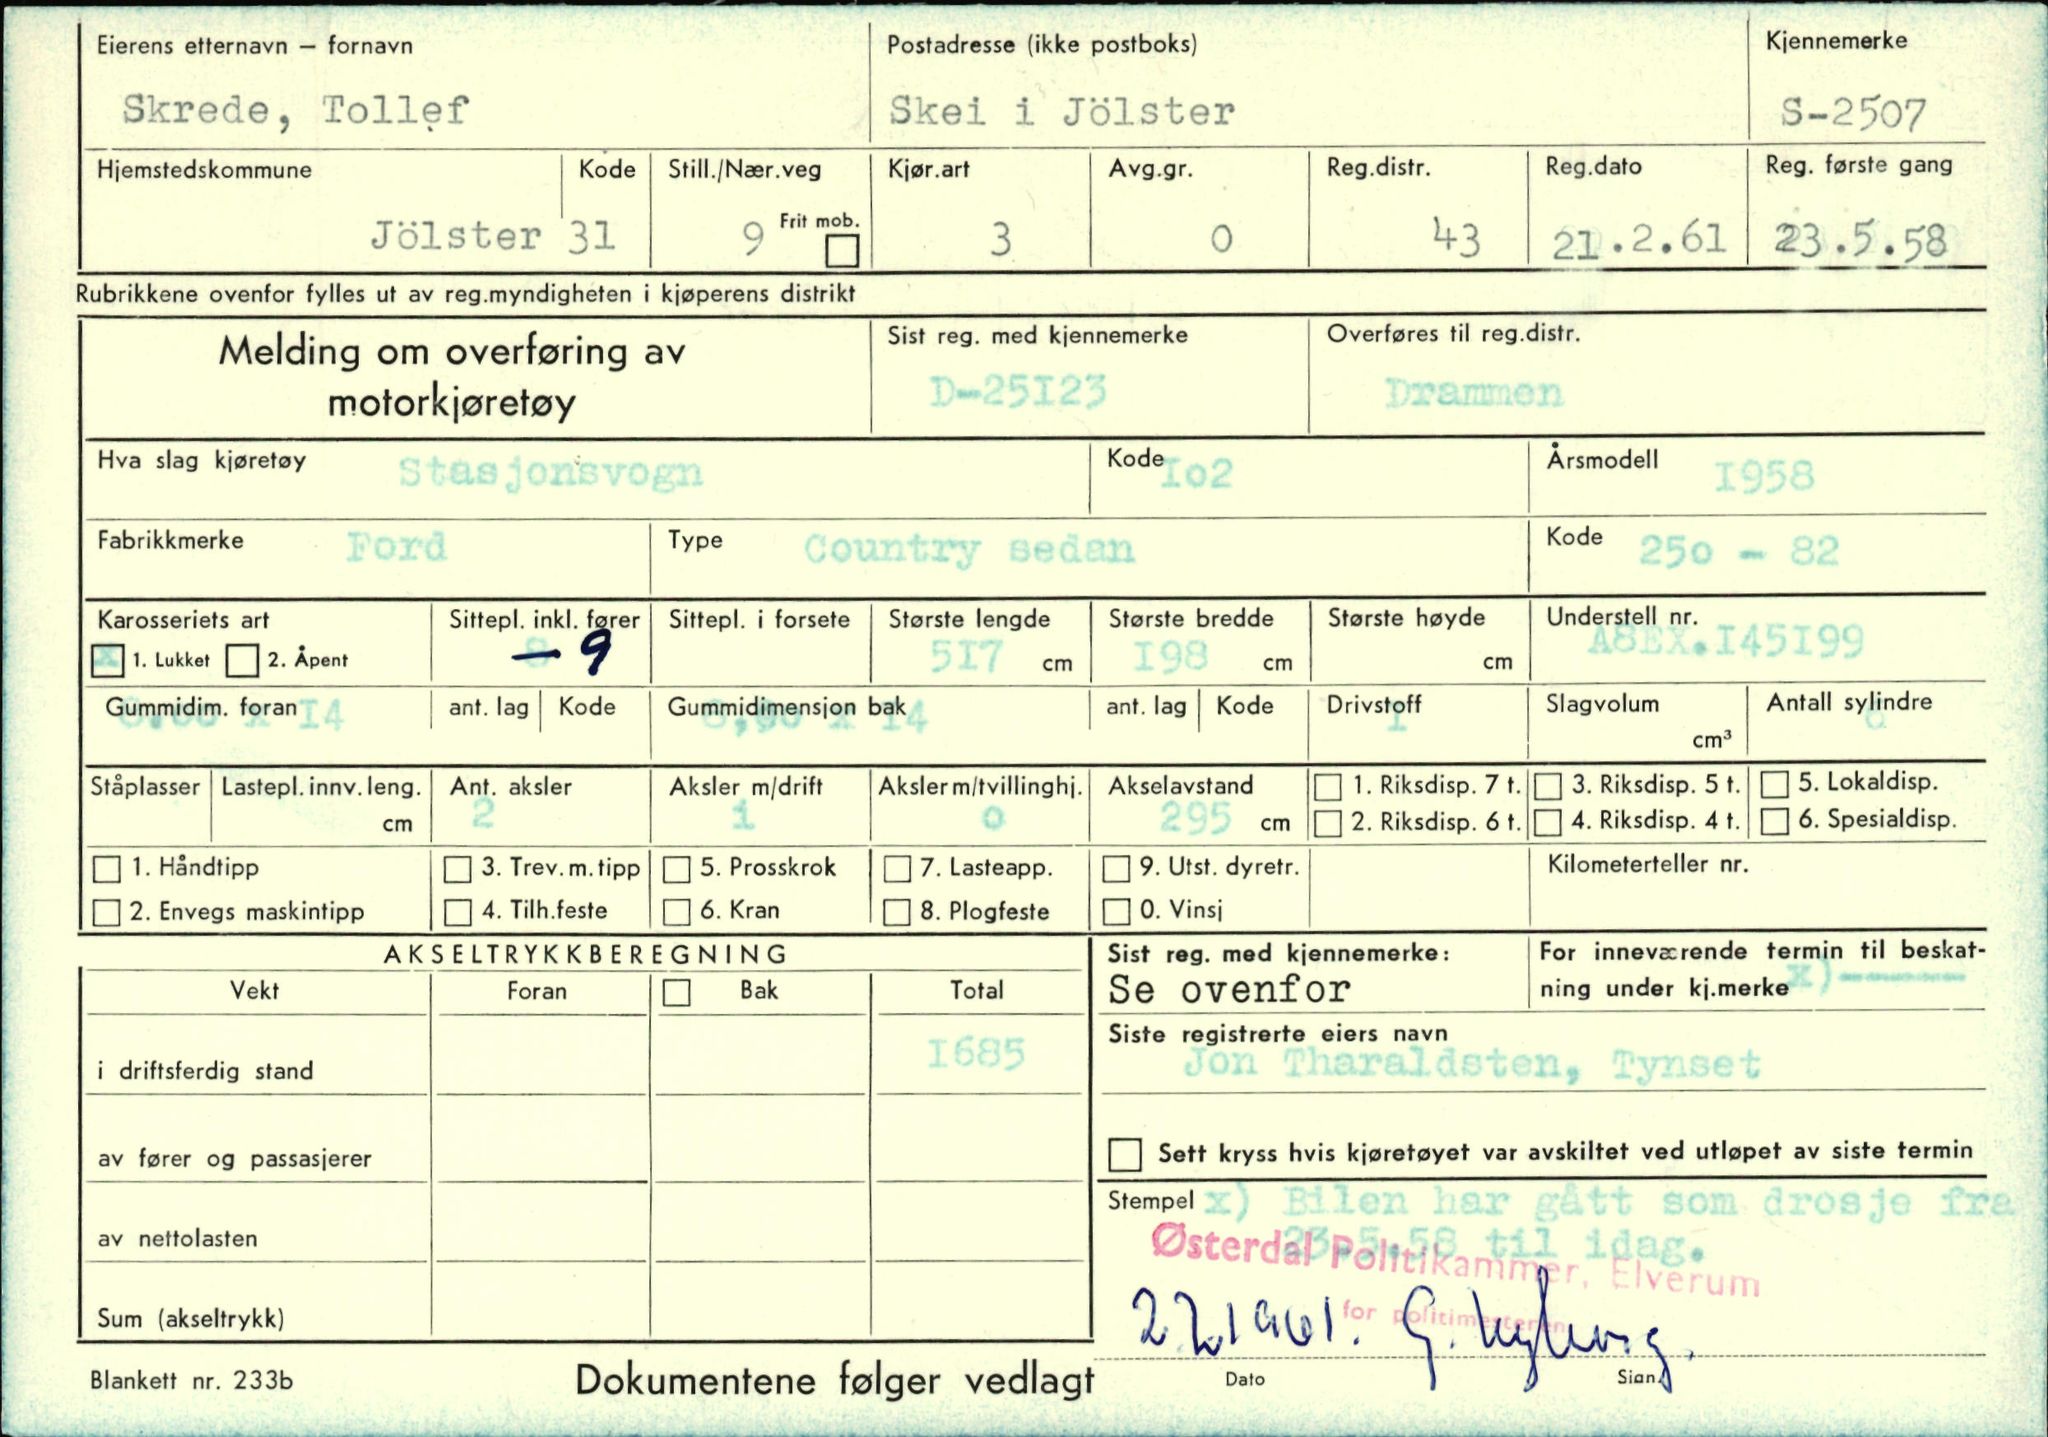 Eierens etternavn – fornavn Postadresse (ikke postboks) Kjennemerke
Skrede, Tollef Skei i Jölster S-2507
Hjemstedskommune Kode Still./Nær.veg Kjør.art Avg.gr. Reg.distr. Reg.dato Reg. første gang
Jölster 31 9 Frit mob. 3 0 43 21.2.61 23.5.58
Rubrikkene ovenfor fylles ut av reg.myndigheten i kjøperens distrikt
Melding om overføring av motorkjøretøy Sist reg. med kjennemerke Overføres til reg.distr.
D-25I23 Drammen
Hva slag kjøretøy Stasjonsvogn Kode Io2 Årsmodell I958
Fabrikkmerke Ford Type Country sedan Kode 25o - 82
Karosseriets art Sittepl. inkl. fører Sittepl. i forsete Største lengde Største bredde Største høyde Understell nr.
x 1. Lukket 2. Åpent 8 – 9 5I7 cm I98 cm cm A8EX.I45I99
Gummidim. foran ant. lag Kode Gummidimensjon bak ant. lag Kode Drivstoff Slagvolum Antall sylindre
x I4 x I4 I cm³
Ståplasser Lastepl. innv. leng. Ant. aksler Aksler m/drift Aksler m/tvillinghj. Akselavstand 1. Riksdisp. 7 t. 3. Riksdisp. 5 t. 5. Lokaldisp.
cm 2 i o 295 cm 2. Riksdisp. 6 t. 4. Riksdisp. 4 t. 6. Spesialdisp.
1. Håndtipp 3. Trev. m. tipp 5. Prosskrok 7. Lasteapp. 9. Utst. dyretr. Kilometerteller nr.
2. Envegs maskintipp 4. Tilh.feste 6. Kran 8. Plogfeste 0. Vinsj
AKSELTRYKKBEREGNING Sist reg. med kjennemerke: For inneværende termin til beskat-
Vekt Foran Bak Total Se ovenfor ning under kj.merke x)-------
Siste registrerte eiers navn
i driftsferdig stand I685 Jon Tharaldsten, Tynset
av fører og passasjerer Sett kryss hvis kjøretøyet var avskiltet ved utløpet av siste termin
Stempel x) Bilen har gått som drosje fra
av nettolasten 23.5.58 til idag.
Østerdal Politikammer, Elverum
for politimesteren
Sum (akseltrykk) 2/2 1961.
Blankett nr. 233b Dokumentene følger vedlagt Dato Sign.